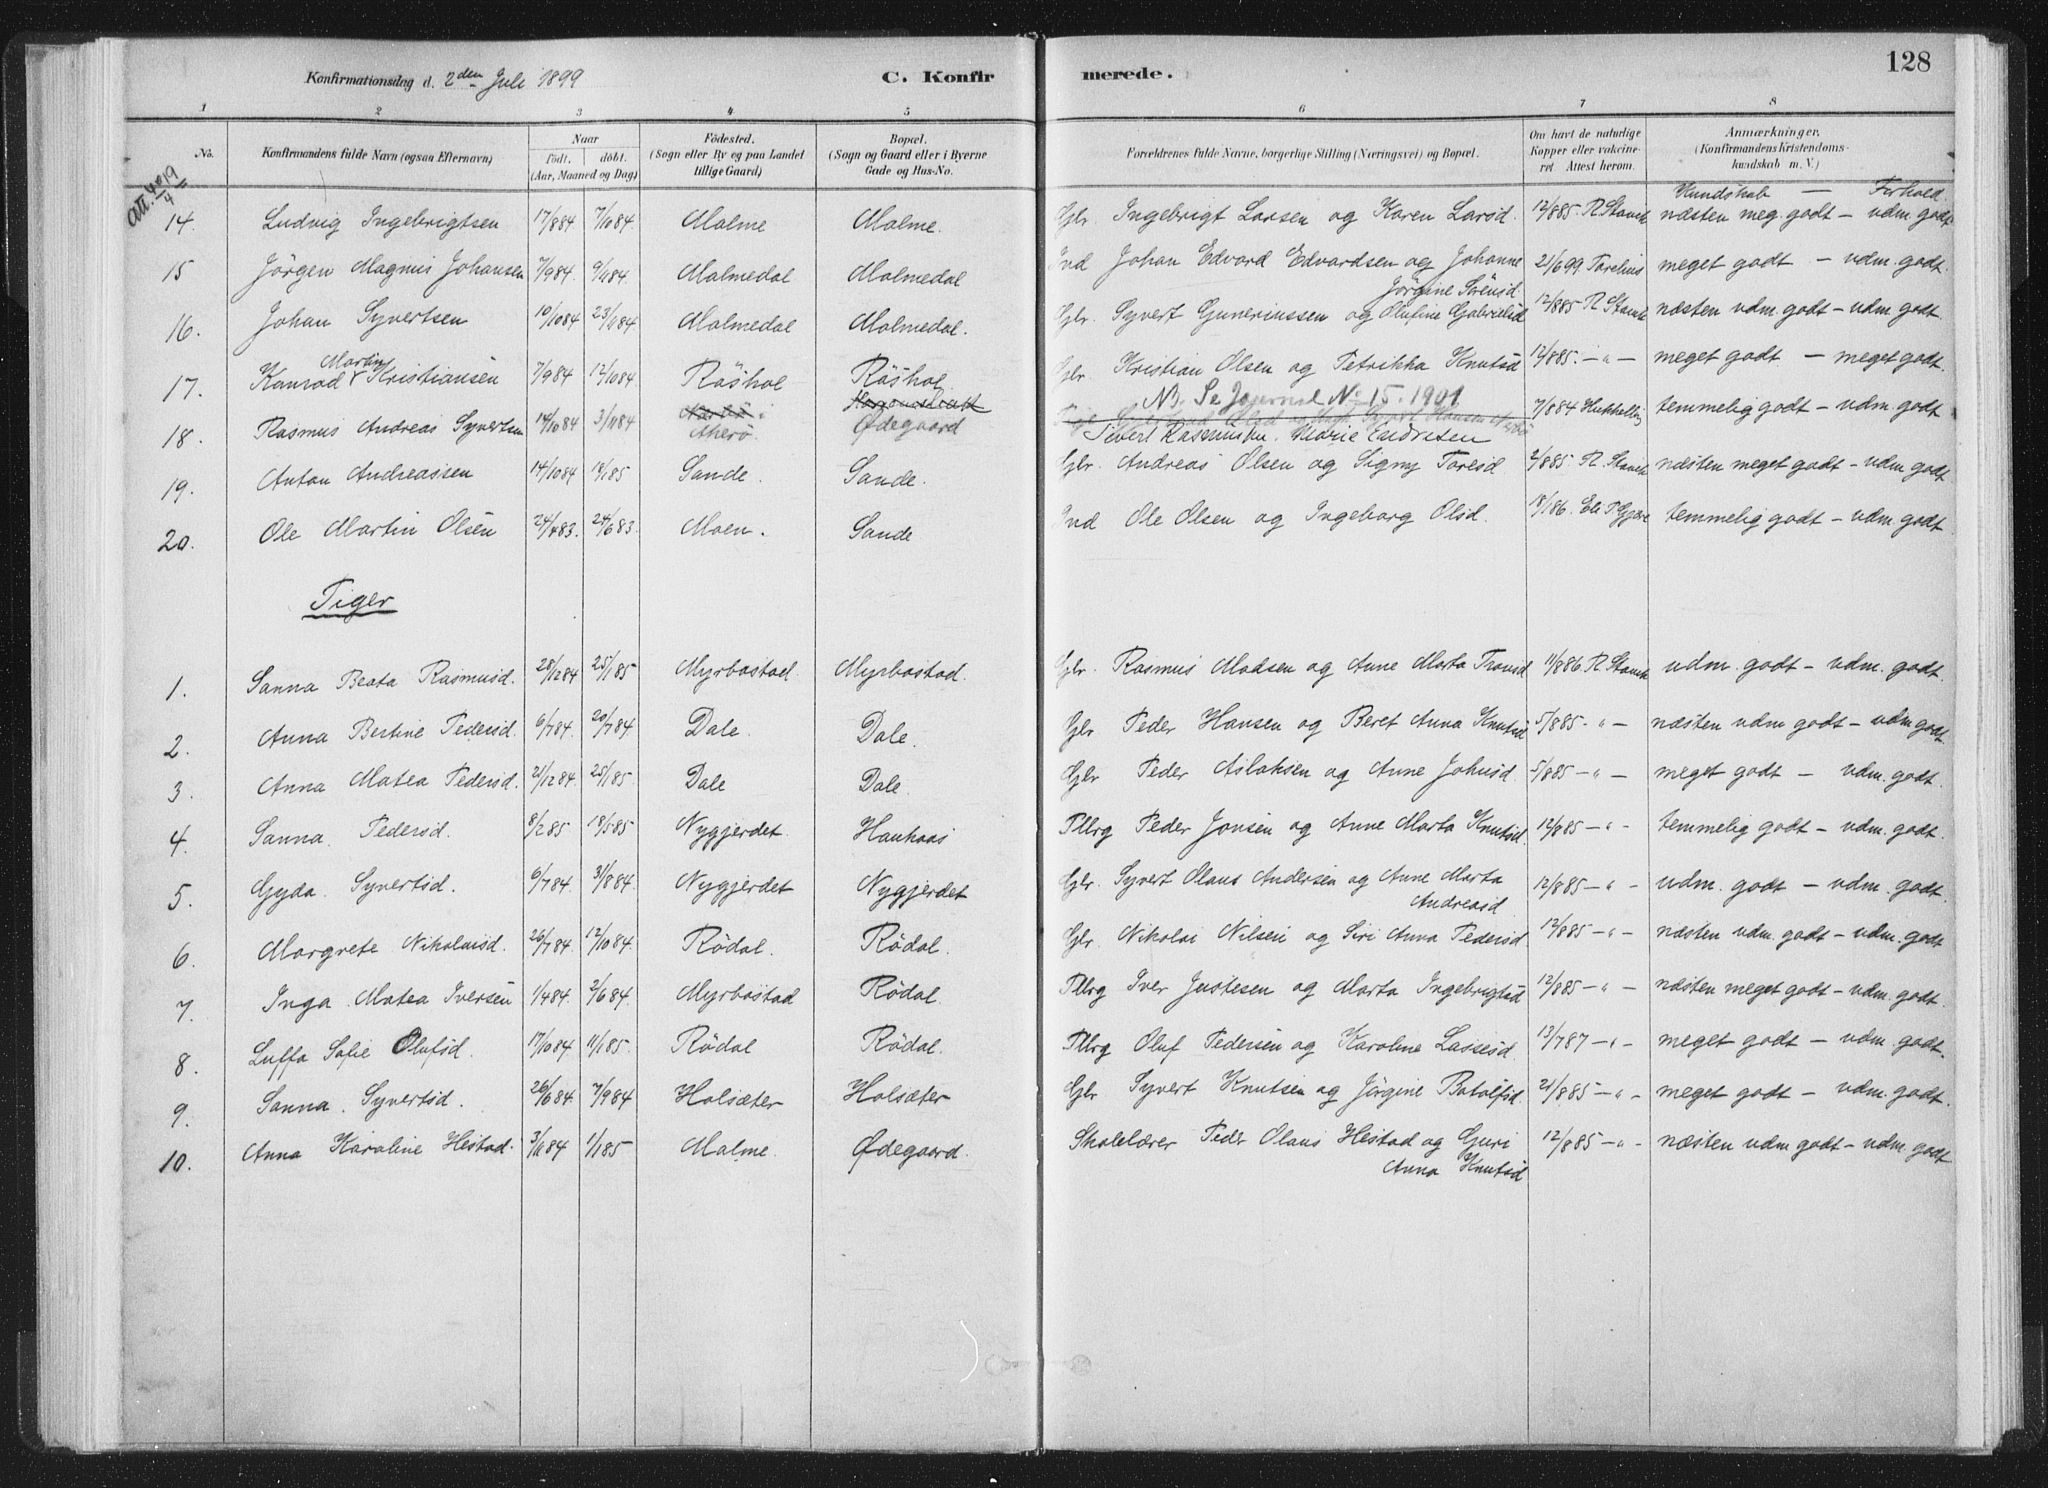 Konfirmationsdag d. 2den Juli 1899 C. Konfirmerede. 128
1 2 3 4 5 6 7 8
No. Konfirmandens fulde Navn (ogsaa Efternavn) Naar Födt. döbt. (Aar, Maaned og Dag) Födested. (Sogn eller By og paa Landet tillige Gaard) Bopæl. (Sogn og Gaard eller i Byerne Gade og Hus-No. Forældrenes fulde Navne, borgerlige Stilling (Næringsvei) og Bopæl. Om havt de naturlige Kopper eller vakcineret Attest herom. Anmærkninger. (Konfirmandens Kristendomskundskab m. V.)
Att. 4/4 19
Kundskab — Forhold.
14. Ludvig Ingebrigtsen 17/8 84 7/10 84. Malme Malme. Gbr. Ingebrigt Larsen og Karen Larsd. 12/8 85. R. Stavik næsten meg. godt — udm. godt
15 Jörgen Magnus Johansen 7/9 84. 9/11 84. Malmedal Malmedal Ind Johan Edvard Edvardsen og Johanne Jörgine Sörensd. 21/6 99. meget godt — udm. godt.
16. Johan Syvertsen 10/10 84 23/11 84 Malmedal Malmedal. Gbr. Syvert Gunerinssen og Olufine Gabrielsd 12/8 85 R Stavik næsten udm. godt — udm. godt.
17. Konrad Martin Kristiansen 7/9 84 12/10 84. Röshol Röshol. Gbr. Kristian Olsen og Petrikka Knutsd 12/8 85. — " — meget godt — meget godt.
NB. Se Journal No 15. 1901
18. Rasmus Andreas Syvertsen 14/10 84 3/11 84 Nærbö Akerö. Ødegaard Sivert Rasmussen. Marie Endresen 7/8 84 temmelig godt — udm. godt
19. Anton Andreassen 14/10 84 18/1 85 Sande. Sande. Gbr. Andreas Olsen og Signy Toresd 2/8 85. R. Stavik næsten meget godt — udm. godt
20. Ole Martin Olsen 24/4 83. 24/6 83. Moen. Sande Ind Ole Olsen og Ingeborg Olsd. 18/1 86. temmelig godt — udm. godt
Piger
1. Sanna Beata Rasmusd. 28/12 84 25/1 85 Myrbostad. Myrbostad. Gbr. Rasmus Madsen og Anne Marta Tronsd 11/8 86 R. Stavik udm. godt — udm. godt.
2. Anna Bertine Pedersd. 6/7 84. 20/7 84 Dale. Dale. Gbr Peder Hansen og Beret Anna Knutsd 5/8 85 — " — næsten udm godt — udm godt
3. Anna Matea Pedersd. 21/12 84. 25/1 85. Dale Dale. Gbr Peder Aslaksen og Anne Johnsd. 5/8 85 — " — meget godt — udm. godt.
4. Sanna Pedersd. 8/2 85 18/5 85 Nygjerdet Haukaas Pllrg Peder Jonsen og Anne Marta Knutsd. 12/8 85 — " — temmelig godt — udm. godt.
5. Gyda Syvertsd. 6/7 84. 31/8 84. Nygjerdet Nygjerdet Gbr. Syvert Olaus Andersen og Anne Marta Andreasd. 12/8 85 — " — udm. godt — udm. godt.
6. Margrete Nikolaisd. 26/7 84. 12/10 84. Rödal. Rödal. Gbr. Nikolai Nilsen og Siri Anna Pedersd 12/8 85 — " — næsten udm. godt — udm. godt
7. Inga Matea Iversen 1/4 84. 2/6 84. Myrbostad Rödal. Pllrg Iver Justesen og Marta Ingebrigtsd 12/8 85 — " — næsten meget godt — udm. godt.
8. Luffa Sofie Olufsd. 17/10 84 11/1 85. Rödal Rödal. Pllrg Oluf Pedersen og Karoline Lassesd. 13/7 87 — " — meget godt — udm. godt.
9. Sanna Syvertsd. 26/6 84. 7/9 84 Holsæter Holsæter Gbr Syvert Knutsen og Jörgine Botolfsd. 21/8 85 — " — meget godt — udm. godt.
10. Anna Karoline Hestad. 3/11 84 1/1 85 Malme. Ødegaard. Skolelærer Peder Olaus Hestad og Guri Anna Knutsd 12/8 85 — " — næsten udm godt — udm. godt